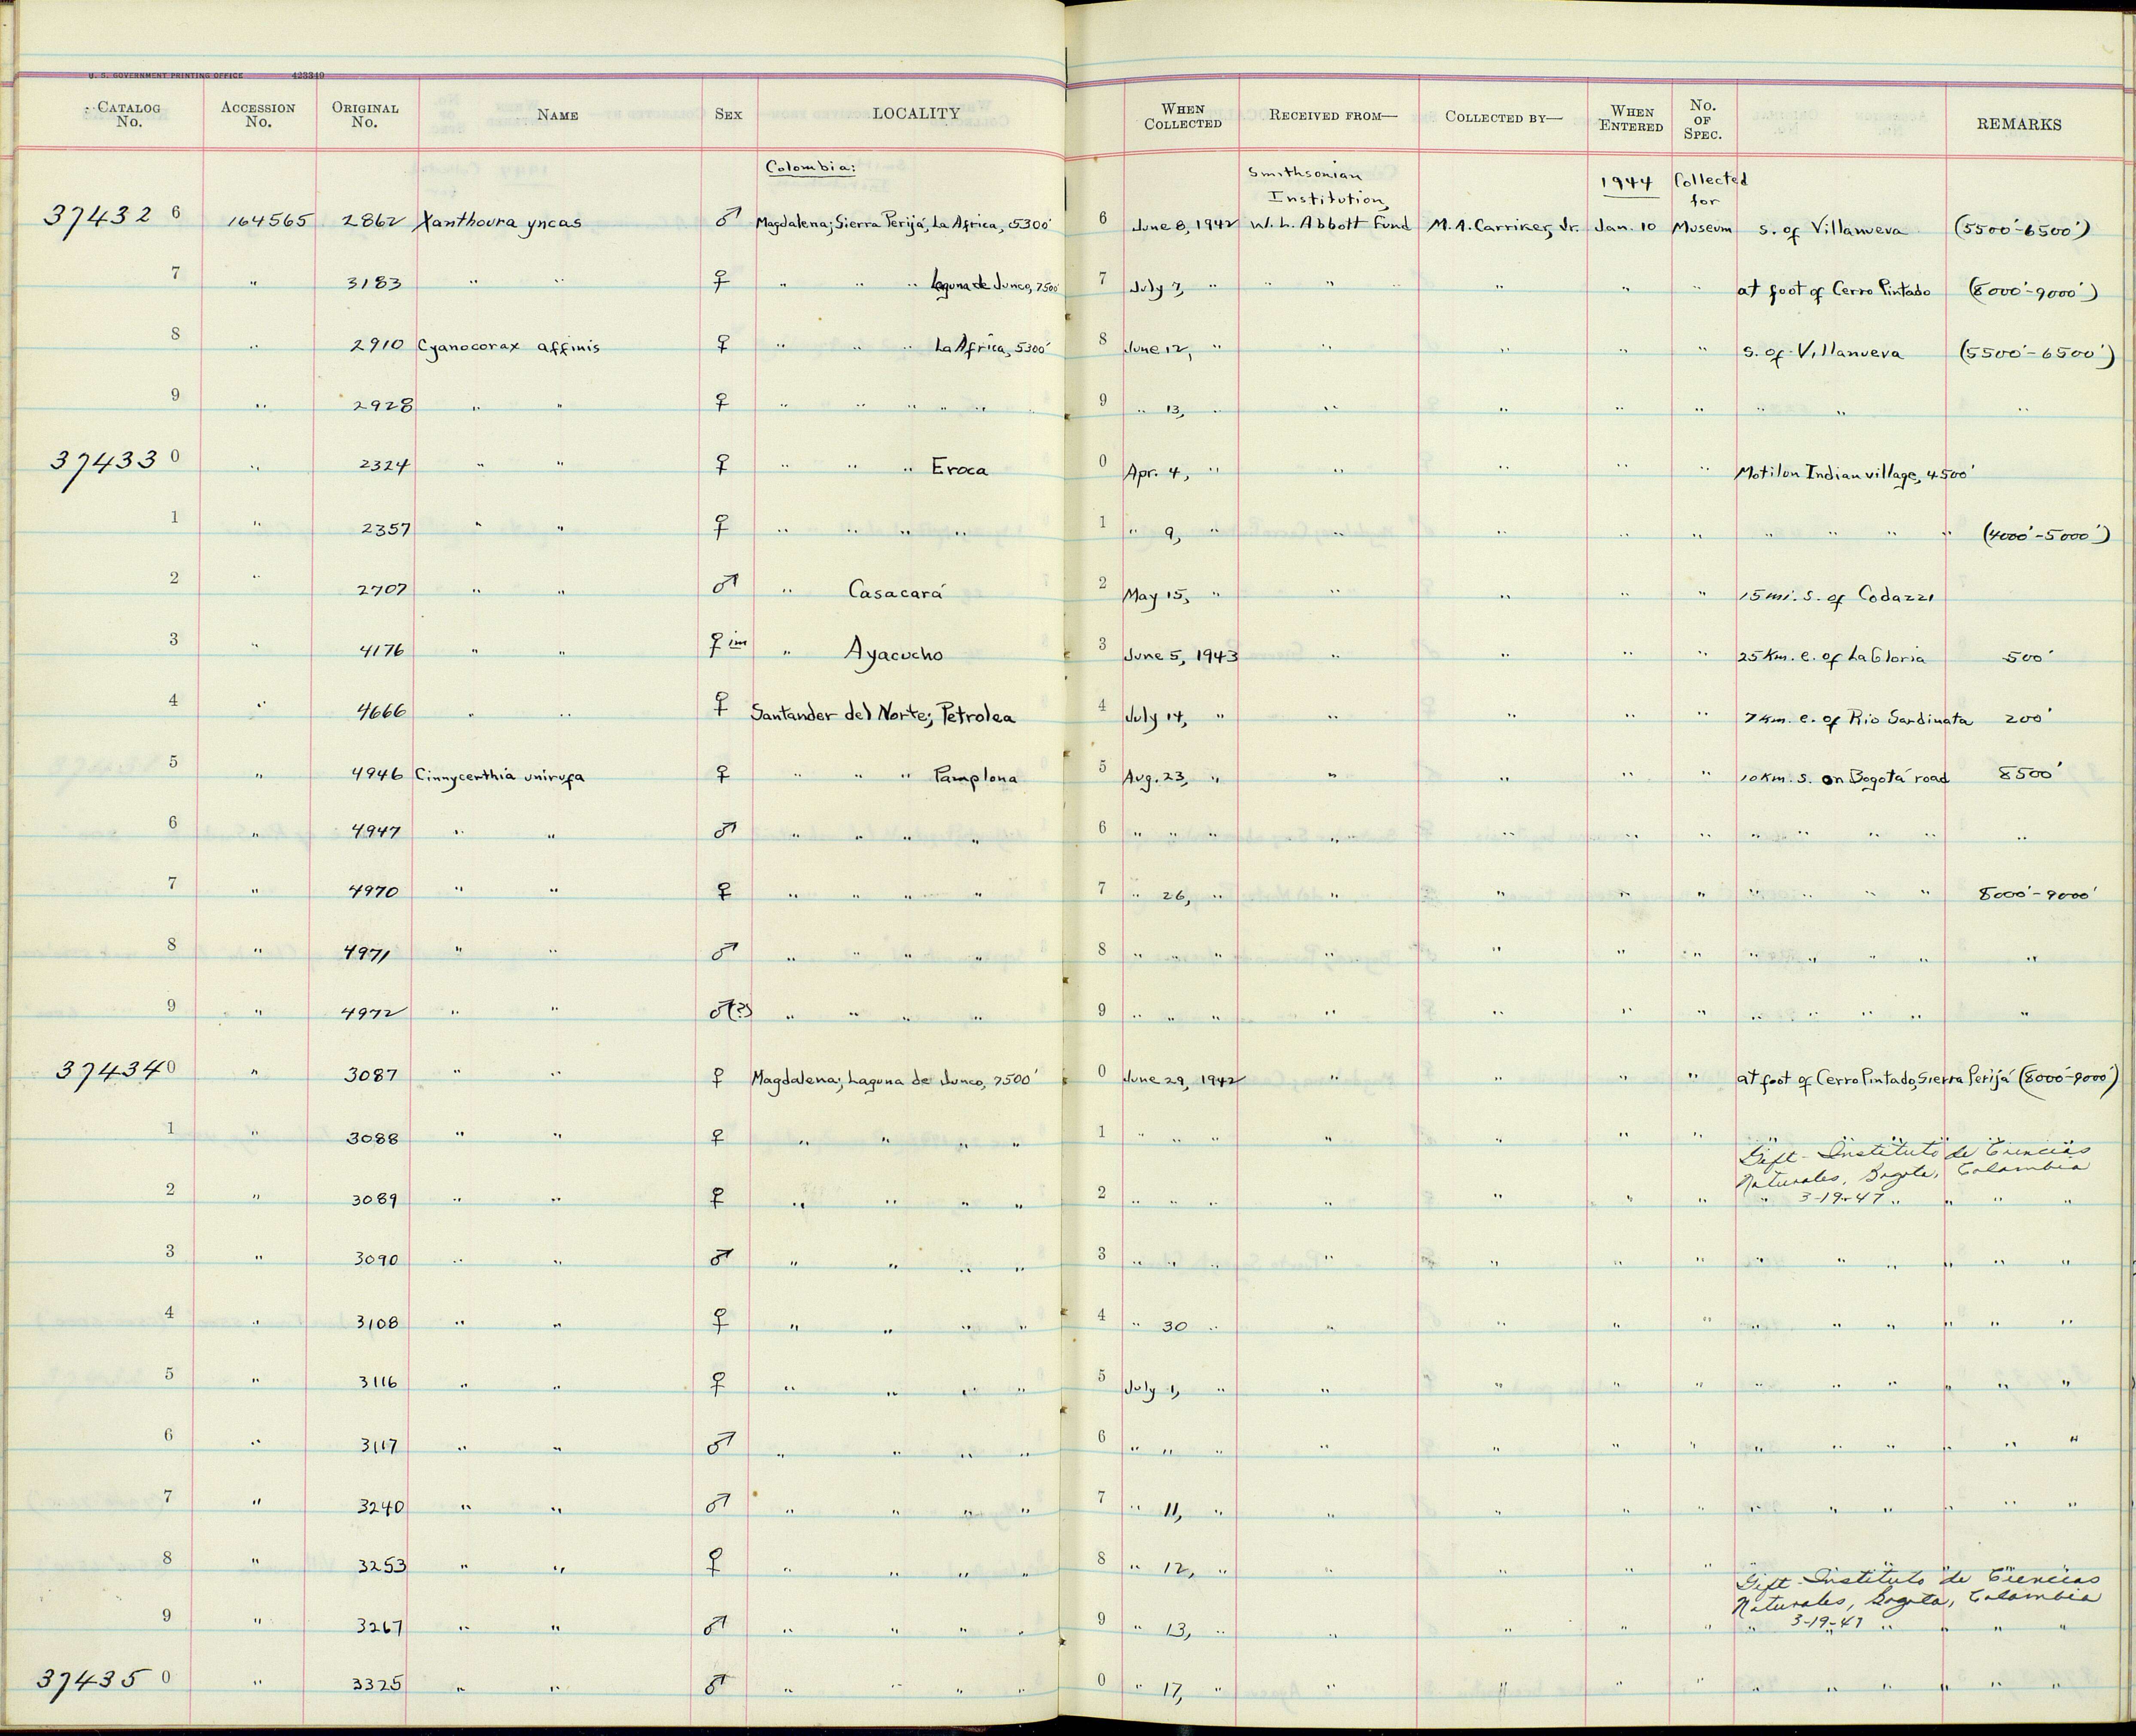 U. S. GOVERNMENT PRINTING OFFICE 423349
CATALOG No. ACCESSION No. ORIGINAL No. NAME SEX LOCALITY WHEN COLLECTED RECEIVED FROM— COLLECTED BY— WHEN ENTERED No. OF SPEC. REMARKS
Colombia: Smithsonian Institution, 1944 Collected for
37432 6 164565 2862 Xanthoura yncas ♂ Magdalena; Sierra Perijá, La Africa, 5300' 6 June 8, 1942 W. L. Abbott Fund M. A. Carriker, Jr. Jan. 10 Museum s. of Villanueva (5500'-6500')
7 " 3183 " " ♀ " " " Laguna de Junco, 7500' 7 July 7, " " " " " " " at foot of Cerro Pintado (8000'-9000')
8 " 2910 Cyanocorax affinis ♀ " " " La Africa, 5300' 8 June 12, " " " " " s. of Villanueva (5500'-6500')
9 " 2928 " " ♀ " " " " " 9 " 13, " " " " " " " "
37433 0 " 2324 " " ♀ " " " Eroca 0 Apr. 4, " " " " " Motilon Indian village, 4500'
1 " 2357 " " ♀ " " " " 1 " 9, " " " " " " " " " (4000'-5000')
2 " 2707 " " ♂ " Casacará 2 May 15, " " " " " 15 mi. s. of Codazzi
3 " 4176 " " ♀ im " Ayacucho 3 June 5, 1943 " " " " 25 Km. e. of La Gloria 500'
4 " 4666 " " ♀ Santander del Norte; Petrolea 4 July 14, " " " " " 7 Km. e. of Rio Sardinata 200'
5 " 4946 Cinnycerthia unirufa ♀ " " " Pamplona 5 Aug. 23, " " " " " 10 Km. s. on Bogotá road 8500'
6 " 4947 " " ♂ " " " " 6 " " " " " " " " " " " "
7 " 4970 " " ♀ " " " " 7 " 26, " " " " " " " " " 8000'-9000'
8 " 4971 " " ♂ " " " " 8 " " " " " " " " " " " "
9 " 4972 " " ♂(?) " " " " 9 " " " " " " " " " " " "
37434 0 " 3087 " " ♀ Magdalena; Laguna de Junco, 7500' 0 June 29, 1942 " " " " at foot of Cerro Pintado, Sierra Perijá (8000'-9000')
1 " 3088 " " ♀ " " " " 1 " " " " " " " " " " " " "
Gift - Instituto de Ciencias
Naturales, Bogota, Colombia
2 " 3089 " " ♀ " " " " 2 " " " " " " " " 3-19-47 " " " "
3 " 3090 " " ♂ " " " " 3 " " " " " " " " " " " " "
4 " 3108 " " ♀ " " " " 4 " 30 " " " " " " " " " " "
5 " 3116 " " ♀ " " " " 5 July 1, " " " " " " " " " " "
6 " 3117 " " ♂ " " " " 6 " " " " " " " " " " " " "
7 " 3240 " " ♂ " " " " 7 " 11, " " " " " " " " " " "
8 " 3253 " " ♀ " " " " 8 " 12, " " " " " " " " " " "
Gift - Instituto de Ciencias
Naturales, Bogota, Colombia
9 " 3267 " " ♂ " " " " 9 " 13, " " " " " " 3-19-47 " " " "
37435 0 " 3325 " " ♂ " " " " 0 " 17, " " " " " " " " " " "